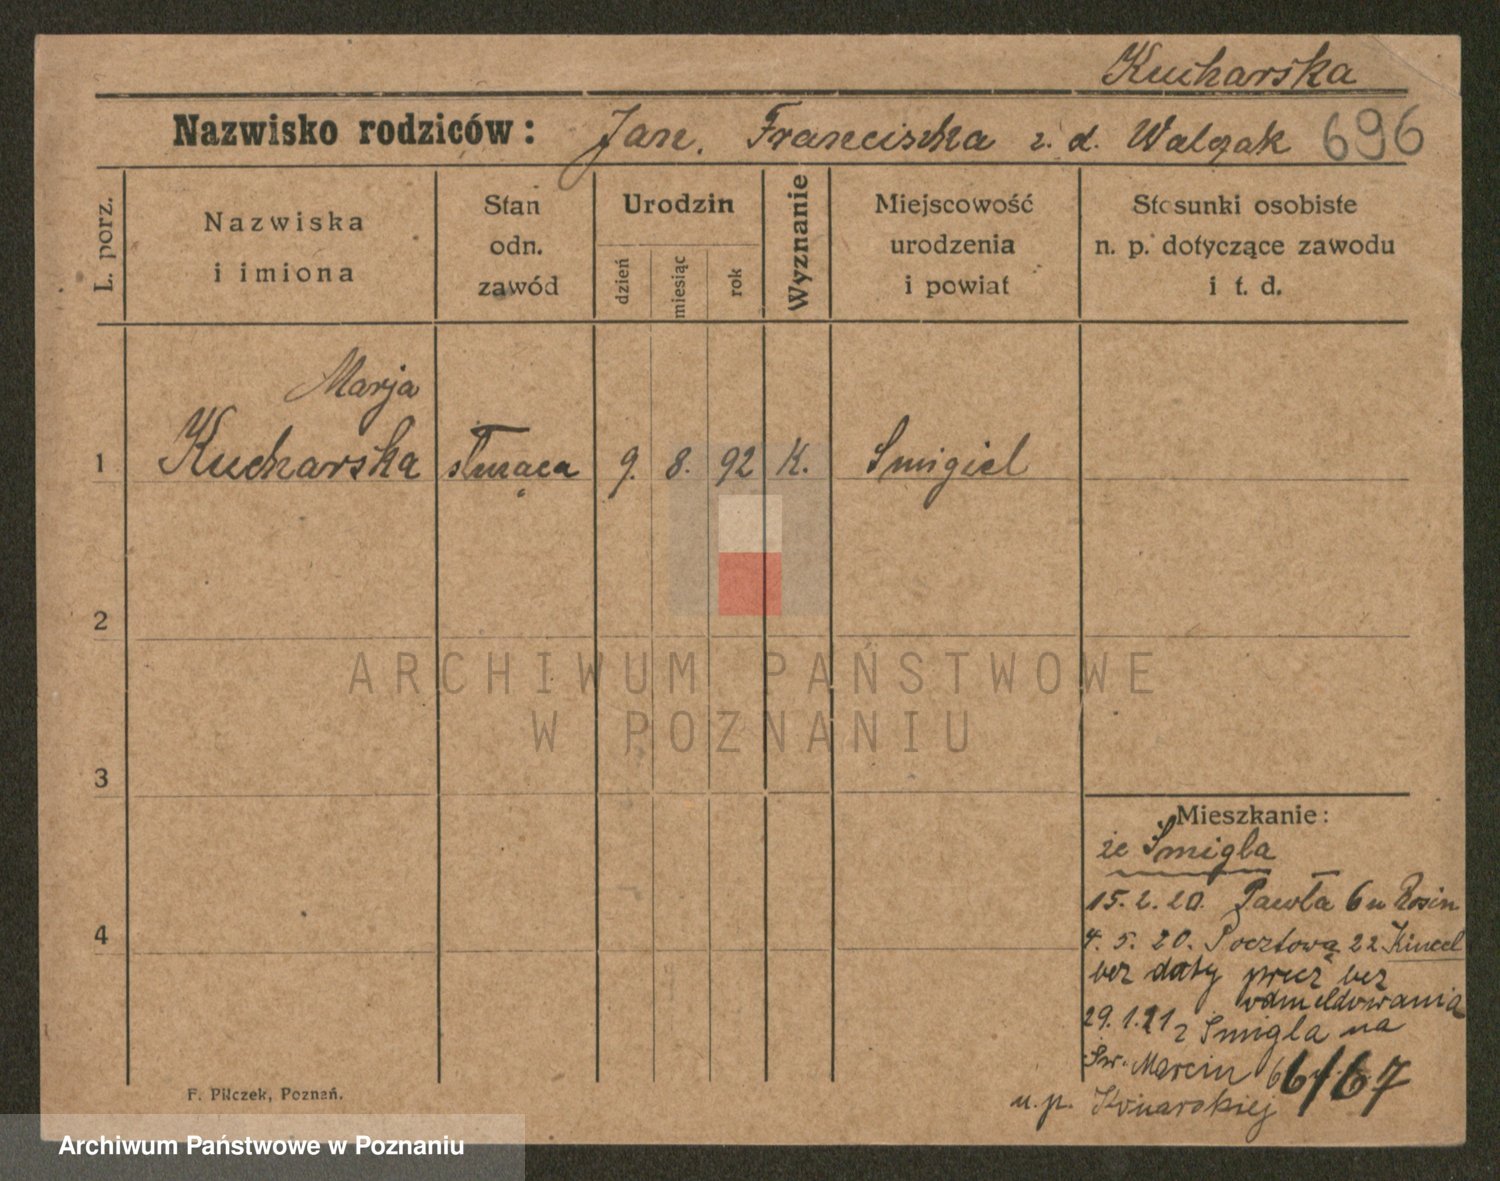 Kucharska
Nazwisko rodziców: Jan. Franciszka z. d. Walczak 696
L. porz.
Nazwiska
i imiona
Stan
odn.
zawód
Urodzin
dzień
miesiąc
rok
Wyznanie
Miejscowość
urodzenia
i powiat
Stosunki osobiste
n. p. dotyczące zawodu
i t. d.
Marja
1 Kucharska służąca 9. 8. 92 K. Smigiel
2
3
4
ARCHIWUM PAŃSTWOWE
W POZNANIU
Mieszkanie:
ze Smigla
15. 2. 20. Pawła 6 u Rosin
4. 5. 20. Pocztowa 22 Kincel
bez daty precz bez
odmeldowania
29. 1. 21 z Smigla na
Św. Marcin 66/67
u. p. Konarskiej
F. Pilczek, Poznań.
Archiwum Państwowe w Poznaniu